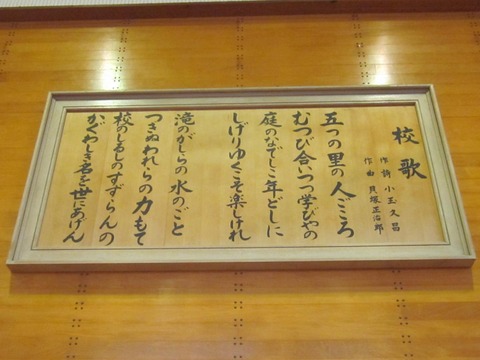 校歌
作詞 小玉久昌
作曲 貝塚正治郎
五つの里の人ごころ
むつび合いつつ学びやの
庭のなでしこ年どしに
しげりゆくこそ楽しけれ
滝のがしらの水のごと
つきぬわれらの力もて
校のしるしのすずらんの
かぐわしき名を世にあげん